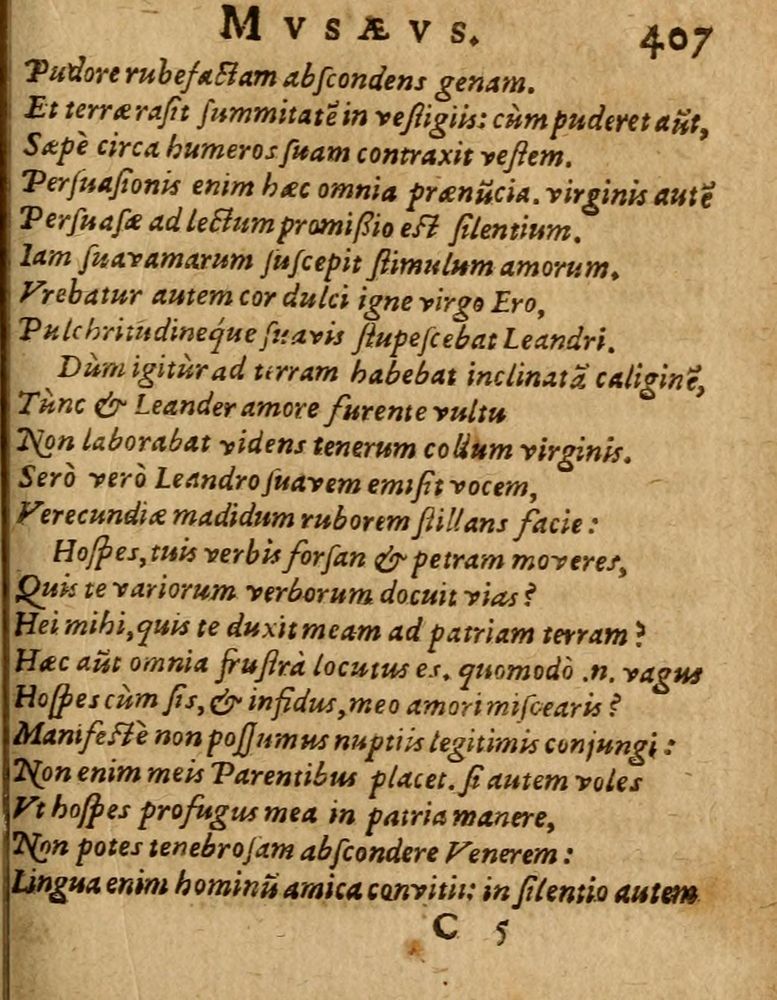 MVSÆVS. 407
Pudore rubefactam abſcondens genam.
Et terræ raſit ſummitatẽ in veſtigiis: cùm puderet aũt,
Sæpè circa humeros ſuam contraxit veſtem.
Perſuaſionis enim hæc omnia prænũcia. virginis autẽ
Perſuaſæ ad lectum promiſſio eſt ſilentium.
Iam ſuavamarum ſuſcepit ſtimulum amorum,
Vrebatur autem cor dulci igne virgo Ero,
Pulchritudineq́ue ſuavis ſtupeſcebat Leandri.
Dùm igitùr ad terram habebat inclinatã caliginẽ,
Tùnc & Leander amore furente vultu
Non laborabat videns tenerum collum virginis.
Serò verò Leandro ſuavem emiſit vocem,
Verecundiæ madidum ruborem ſtillans facie:
Hoſpes, tuis verbis forſan & petram moveres,
Quis te variorum verborum docuit vias?
Hei mihi, quis te duxit meam ad patriam terram?
Hæc aũt omnia fruſtrà locutus es. quomodò .n. vagus
Hoſpes cùm ſis, & infidus, meo amori miſcearis?
Manifeſtè non poſſumus nuptiis legitimis conjungi:
Non enim meis Parentibus placet. ſi autem voles
Vt hoſpes profugus mea in patria manere,
Non potes tenebroſam abſcondere Venerem:
Lingua enim hominũ amica convitii: in ſilentio autem
C 5